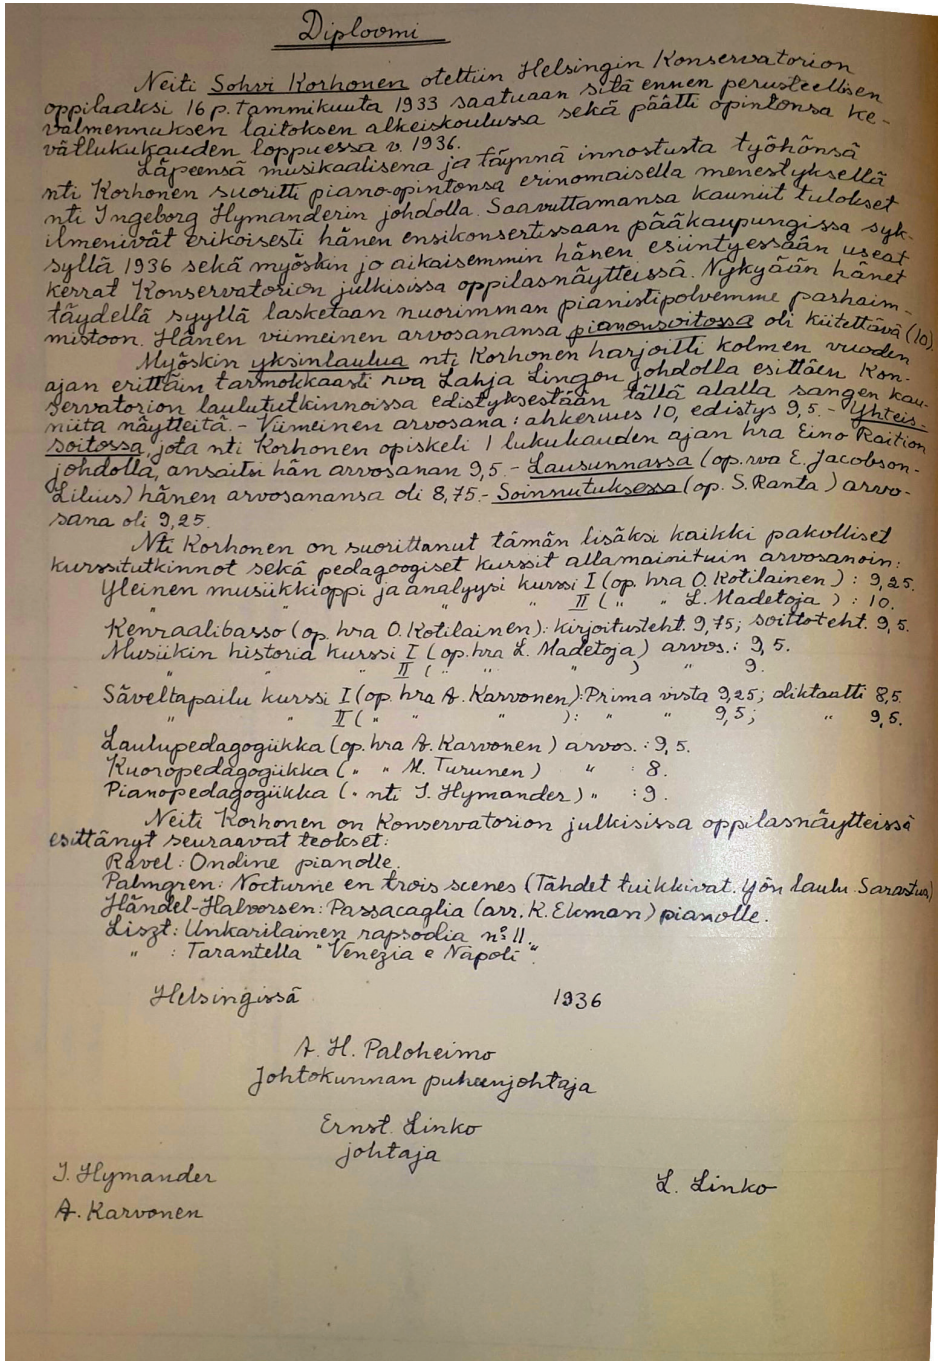 Diploomi
Neiti Sohvi Korhonen otettiin Helsingin Konservatorion
oppilaaksi 16 p. tammikuuta 1933 saatuaan sitä ennen perusteellisen
valmennuksen laitoksen alkeiskoulussa sekä päätti opintonsa ke-
vätlukukauden loppuessa v. 1936.
Läpeensä musikaalisena ja täynnä innostusta työhönsä
nti Korhonen suoritti piano-opintonsa erinomaisella menestyksellä
nti Ingeborg Hymanderin johdolla. Saavuttamansa kauniit tulokset
ilmenivät erikoisesti hänen ensikonsertissaan pääkaupungissa syk-
syllä 1936 sekä myöskin jo aikaisemmin hänen esiintyessään useat
kerrat Konservatorion julkisissa oppilasnäytteissä. Nykyään hänet
täydellä syyllä lasketaan nuorimman pianistipolvemme parhaim-
mistoon. Hänen viimeinen arvosanansa pianonsoitossa oli kiitettävä (10).
Myöskin yksinlaulua nti Korhonen harjoitti kolmen vuoden
ajan erittäin tarmokkaasti rva Lahja Lingon johdolla esittäen Kon-
servatorion laulututkinnoissa edistyksestään tällä alalla sangen kau-
niita näytteitä. - Viimeinen arvosana: ahkeruus 10, edistys 9,5. - Yhteis-
soitossa, jota nti Korhonen opiskeli 1 lukukauden ajan hra Eino Raition
johdolla, ansaitsi hän arvosanan 9,5. - Lausunnassa (op. rva E. Jacobson-
Lilius) hänen arvosanansa oli 8,75. - Soinnutuksessa (op. S. Ranta) arvo-
sana oli 9,25.
Nti Korhonen on suorittanut tämän lisäksi kaikki pakolliset
kurssitutkinnot sekä pedagoogiset kurssit allamainituin arvosanoin:
Yleinen musiikkioppi ja analyysi kurssi I (op. hra O. Kotilainen) : 9,25.
" " " " II ( " " L. Madetoja ) : 10.
Kenraalibasso (op. hra O. Kotilainen): kirjoitusteht. 9,75; soittoteht. 9,5.
Musiikin historia kurssi I (op. hra L. Madetoja) arvos.: 9,5.
" " " II ( " " " ) " 9.
Säveltapailu kurssi I (op. hra A. Karvonen): Prima vista 9,25; diktaatti 8,5.
" " II ( " " " ): " " 9,5; " 9,5.
Laulupedagogiikka (op. hra A. Karvonen) arvos. : 9,5.
Kuoropedagogiikka ( " " M. Turunen) " : 8.
Pianopedagogiikka ( " nti I. Hymander) " : 9.
Neiti Korhonen on Konservatorion julkisissa oppilasnäytteissä
esittänyt seuraavat teokset:
Ravel: Ondine pianolle.
Palmgren: Nocturne en trois scenes (Tähdet tuikkivat. Yön laulu. Sarastus)
Händel-Halvorsen: Passacaglia (arr. K. Ekman) pianolle.
Liszt: Unkarilainen rapsodia nº 11.
" : Tarantella "Venezia e Napoli".
Helsingissä 1936
A. H. Paloheimo
Johtokunnan puheenjohtaja
Ernst Linko
johtaja
I. Hymander
L. Linko
A. Karvonen